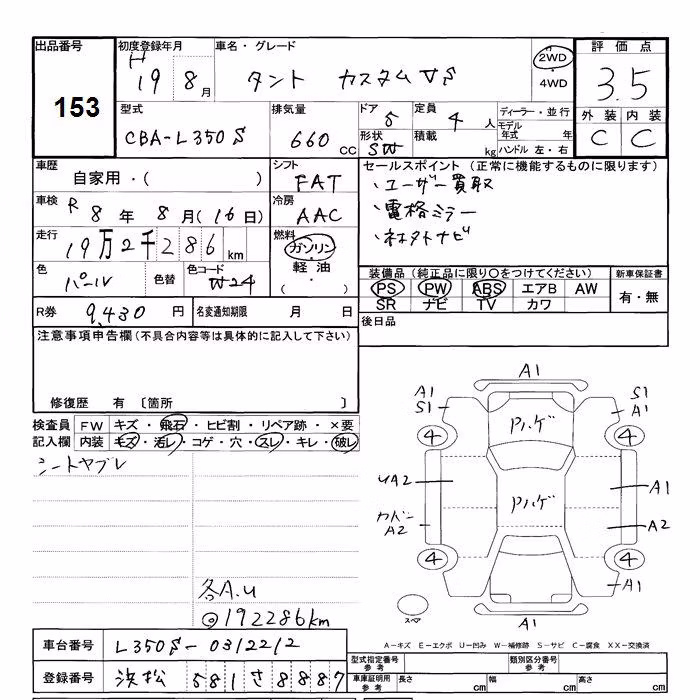 出品番号
153
初度登録年月
H 19 8月
車名・グレード
タント カスタムVS
2WD
・
4WD
評価点
3.5
外装 内装
C C
型式
CBA-L350S
排気量
660 cc
ドア 5
形状 SW
定員 4人
積載 kg
ディーラー・並行
モデル年式 年
ハンドル 左・右
車歴
自家用・( )
シフト
FAT
車検
R 8年 8月(16日)
冷房
AAC
走行
19万2千286km
燃料
ガソリン
・
軽油
( ・ )
色
パール
色替
色コード
W24
R券 9,430円
名変通知期限 月 日
セールスポイント (正常に機能するものに限ります)
、ユーザー買取
、電格ミラー
、社外ナビ
装備品(純正品に限り〇をつけてください)
PS PW ABS エアB AW
SR ナビ TV カワ
新車保証書
有・無
後日品
注意事項申告欄(不具合内容等は具体的に記入して下さい)
修復歴 有 〔箇所 〕
検査員記入欄
FW キズ・飛石・ヒビ割・リペア跡・×要
内装 キズ・汚レ・コゲ・穴・スレ・キレ・破レ
シートヤブレ
各A.U
◎192286km
A1
A1
S1
S1
A1
Pハゲ
4
4
UA2
A1
Pハゲ
カドー
A2
A2
4
4
A1
スペア
A1
A-キズ E-エクボ U-凹み W-補修跡 S-サビ C-腐食 XX-交換済
車台番号 L350S-0312212
登録番号 浜松 581さ8887
型式指定番号
参考
類別区分番号
参考
車庫証明用
参考
長さ cm
幅 cm
高さ cm